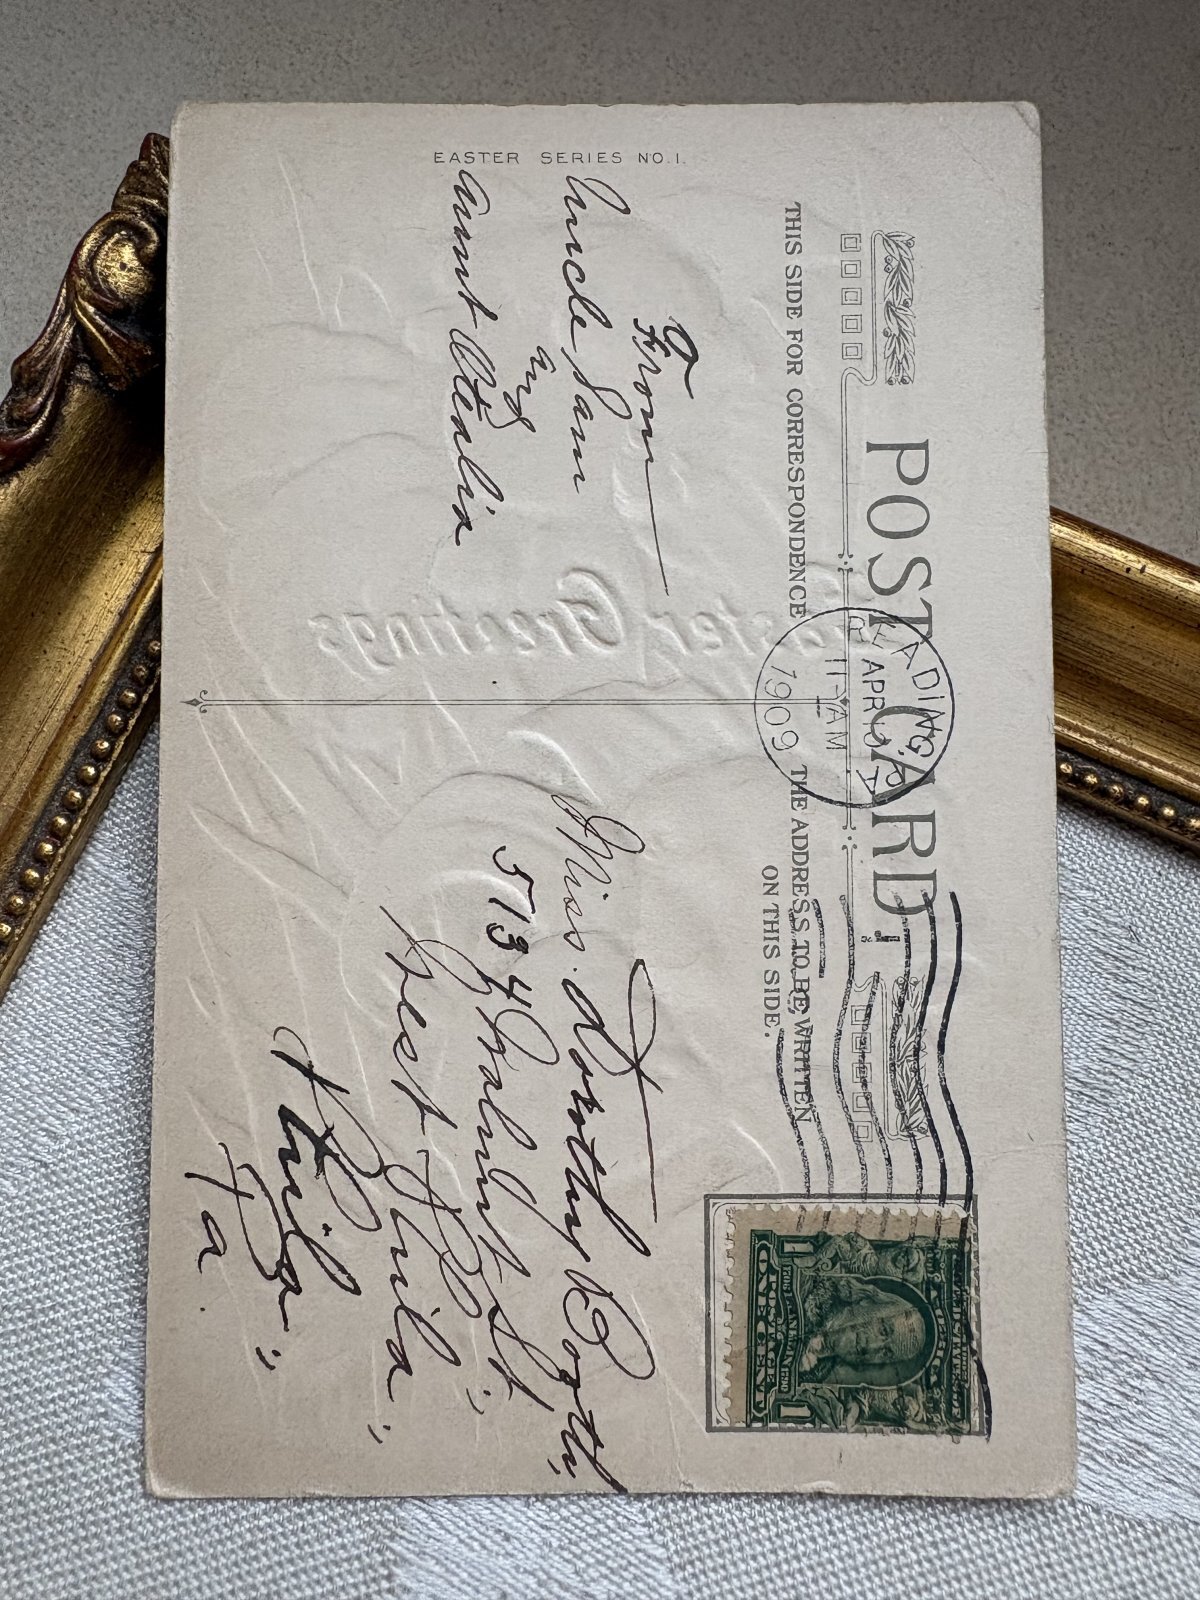 EASTER SERIES NO. 1.
POST CARD
THIS SIDE FOR CORRESPONDENCE
THE ADDRESS TO BE WRITTEN
ON THIS SIDE.
READING, PA
APR
11-AM
1909
ONE CENT
1 1
From
Uncle Sam
and
Aunt
Easter Greetings
Miss. Dorothy Booth,
5134 Walnut St.,
West Phila.,
Phila.,
Pa.